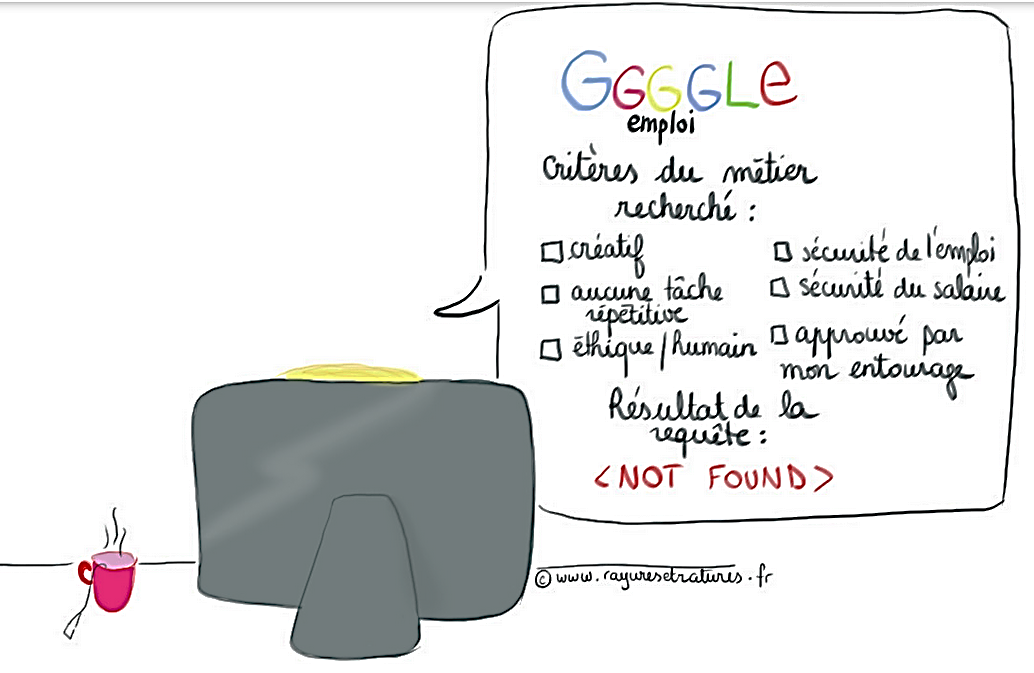 GGGGLe
emploi
Critères du métier
recherché :
créatif
aucune tâche
répétitive
éthique / humain
sécurité de l'emploi
sécurité du salaire
approuvé par
mon entourage
Résultat de la
requête :
<NOT FOUND>
© www.rayuresetratures.fr